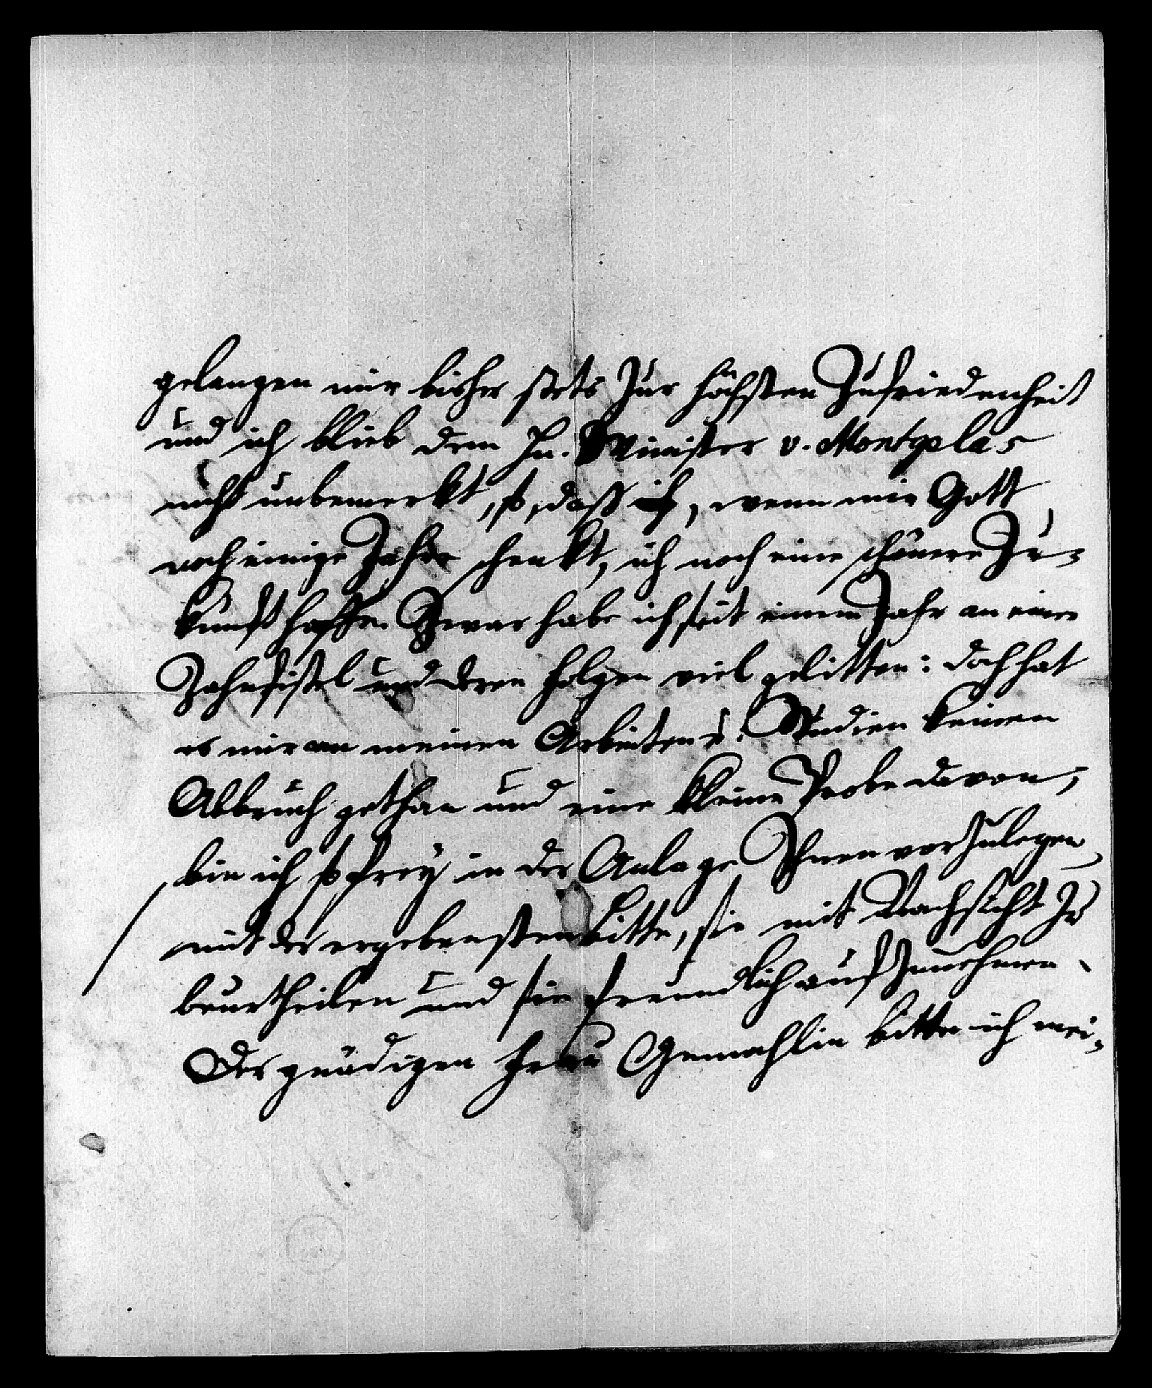 gelangen mir bisher stets zur höchsten Zufriedenheit
und ich blieb dem Hn. Minister v. Montgelas
nicht unbemerkt, so, daß ich, wenn mir Gott
noch einige Jahre schenkt, ich noch eine schönere Zu-
kunft hoffe. Zwar habe ich seit einem Jahr an einer
Zahnfistel und deren Folgen viel gelitten: doch hat
es mir an meinen Arbeiten u. Studien keinen
Abbruch gethan und eine kleine Probe davon,
bin ich so frey in der Anlage Ihnen vorzulegen,
mit der ergebensten Bitte, sie mit Nachsicht zu
beurtheilen und sie freundlich aufzunehmen.
Der gnädigen Frau Gemahlin bitte ich mei-